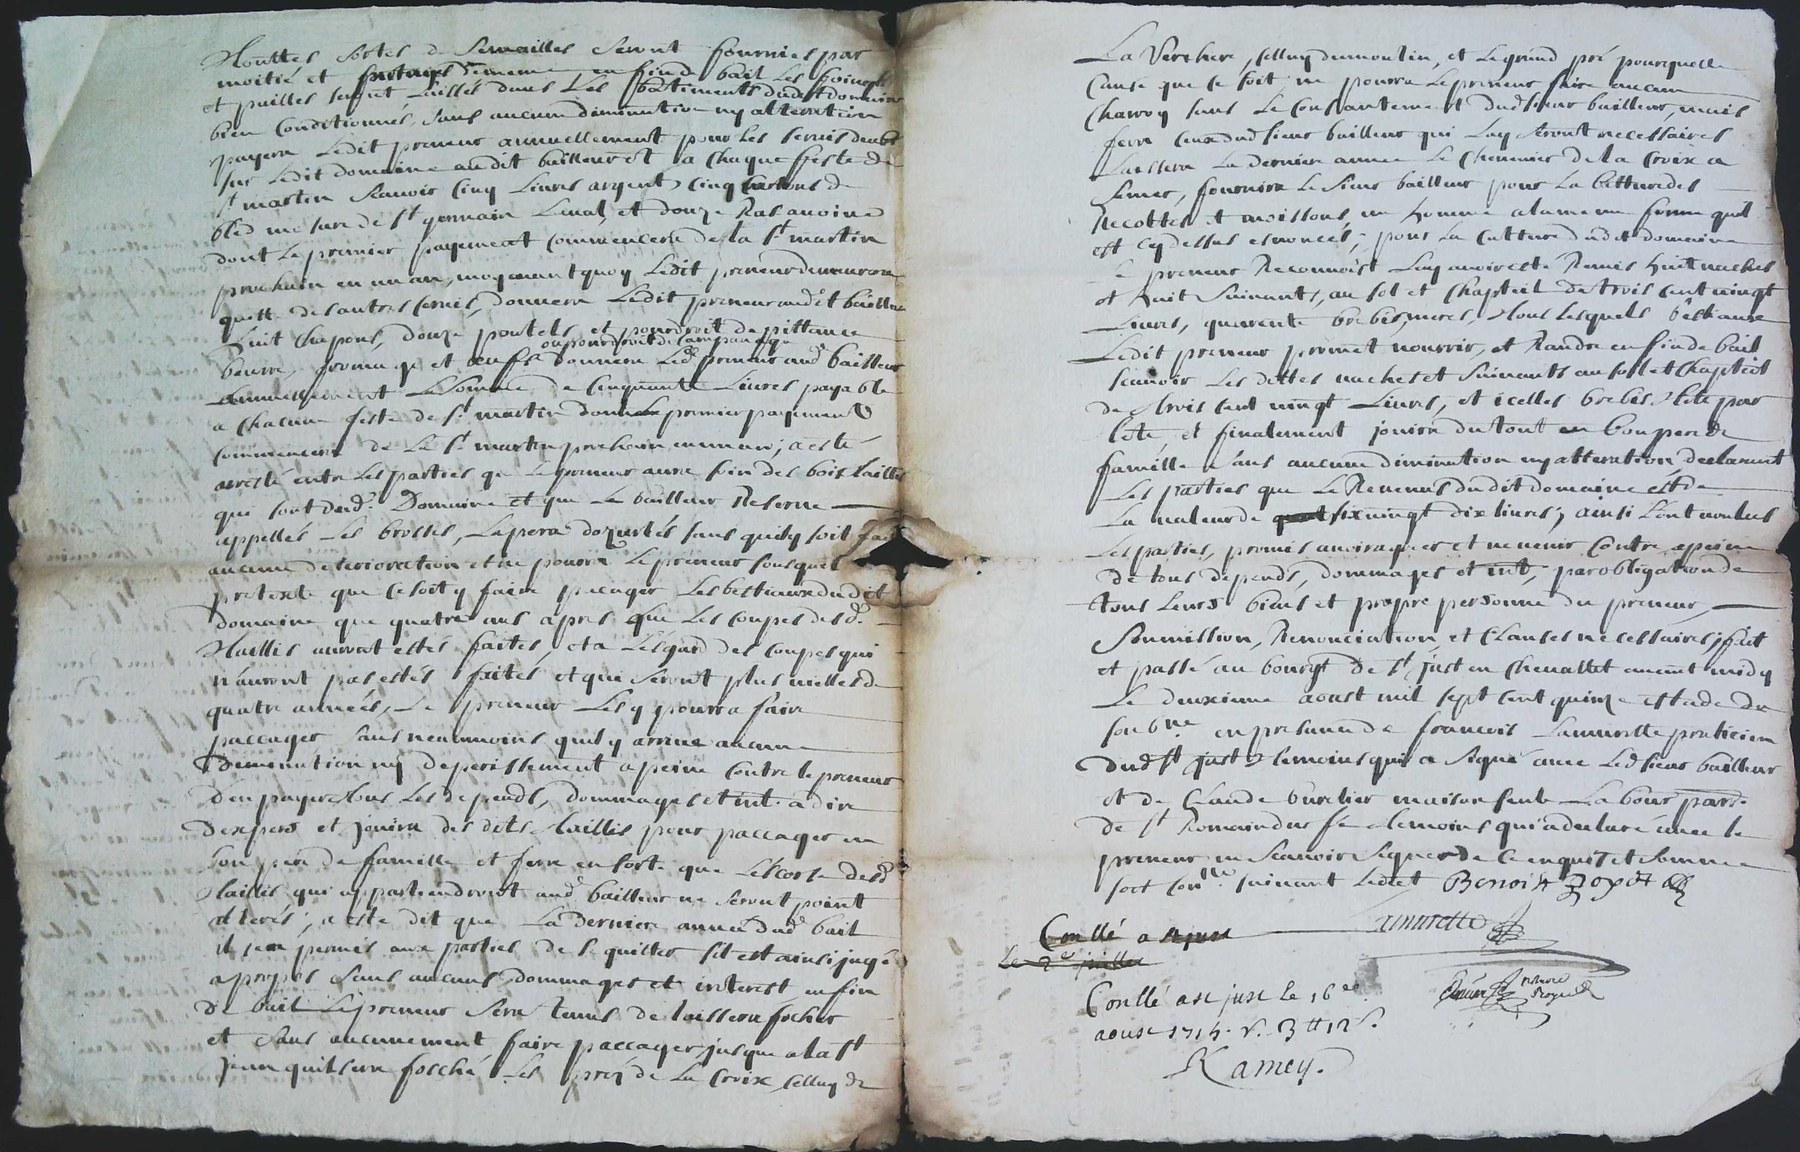 Touttes sortes de Semailles Seront fournies par
moitié et partages de mesme en fin de bail Les foins
et pailles seront Laissés dans Les bastiments dudit domaine
bien Conditionnés, sans aucune diminution ny alteration
payera Ledit preneur annuellement pour les servis deubs
sur Ledit domaine audit bailleur et a Chaque feste de
st martin Scauoir Cinq Liures argent, Cinq cartons de
bled mesure de st germain Laual, et douze Ras auoine
dont Le premier payement Commencera de la st martin
prochain en un an, moyenant quoy Ledit preneur demeurera
quitte des autres seruis, donnera Ledit preneur audit bailleur
huit Chapons, douze poulets, et pour droit de pittance
ou pour droit de Campanage
beurre, fromage et oeufs donnera Led preneur aud bailleur
annuellement La Somme de Cinquante Liures payable
a Chacune feste de st martin dont Le premier payement
commencera de La st martin prochain en un an; a esté
arresté entre Les parties que Le preneur aura soin des bois taillis
qui sont dud. Domaine et que Le bailleur Reserue
appellés Les brosses, sans quil y soit fait
aucune deterioration et ne pourra Le preneur sous quel
pretexte que ce soit y faire paccager Les bestiaux dudit
Domaine que quatre ans apres que Les Coupes desd.
Taillis auront estés faites, et a Lesgard des Coupes qui
n'auront pas estés faites et qui Seront plus vielles de
quatre années, Le preneur Les y pourra faire
paccager sans neanmoins quil y arriue aucune
diminution ny deperissement a peine Contre le preneur
Den payer tous Les depends, dommages et int. a dire
Dexpers et jouira des dits Taillis pour paccager en
bon pere de famille et ferra en sorte que Lescorse desd
Taillis qui appartiendront aud bailleur ne seront point
alterés; a esté dit que La derniere année dud bail
il sera permis aux parties de se quitter sil est ainsi jugé
a propos Sans aucuns dommages et interest en fin
De bail Le preneur Sera tenus de laisser a focher
et Sans aucunement faire paccager jusque a la st
Jean quil sera fosché Les prez de La Croix, Celluy de
La Verchere, Celluy du moulin, et Le grand pré pour quelle
Cause que ce soit ne pourra Le preneur faire aucun
Charroy sans Le Consantement dud sieur bailleur, mais
ferra Ceux dud sieur bailleur qui Luy seront necessaires
Laissera La derniere année Le Cheneuier de la Croix a
semer, fournira Le Sieur bailleur pour La batture des
Recoltes et moissons, un homme a la mesme forme quil
est Cy dessus esnoncés; pour La Culture dudit domaine
Le preneur Reconnoist Luy auoir esté Remis huit vaches
et huit Suiuants, au sol et Chapteil de trois Cent vingt
Liures, quarente brebis meres, Tous Lesquels bestiaux
Ledit preneur promet nourrir, et Randre en fin de bail
Scauoir Les dittes vaches et Suiuants au sol et Chapteil
de trois Cent vingt Liures, et icelles brebis teste pour
teste, et finalement jouira du tout en bon pere de
famille Sans aucune diminution ny alteration, declarent
Les parties que Le Reuenus dudit domaine est de
La valeur de six vingt dix liures; ainsi Lont voulus
Les parties, promis auoir agréer et ne venir Contre a peine
De tous depends, dommages et int, par obligation de
tous Leurs biens et propre personne du preneur,
Soumission, Renonciation, et Clauses necessaires, fait
et passé au bourgt de st just en Cheuallet auant midy
Le deuxieme aoust mil sept cent quinze
en presence de francois Lamurette praticien
Dud st just temoins qui a signé auec Led sieur bailleur
et de Claude
de st Romain temoins qui a declaré auec le
preneur ne Scauoir Signer de Ce enquis et Somme
soit Con.lle suiuant Ledict Benoist
Lamurette
Conllé a st just
Le 2e juillet
notaire
Royal
Conllé a st just Le 16e
aoust 1715. R. 3tt 12s.
Ramey.